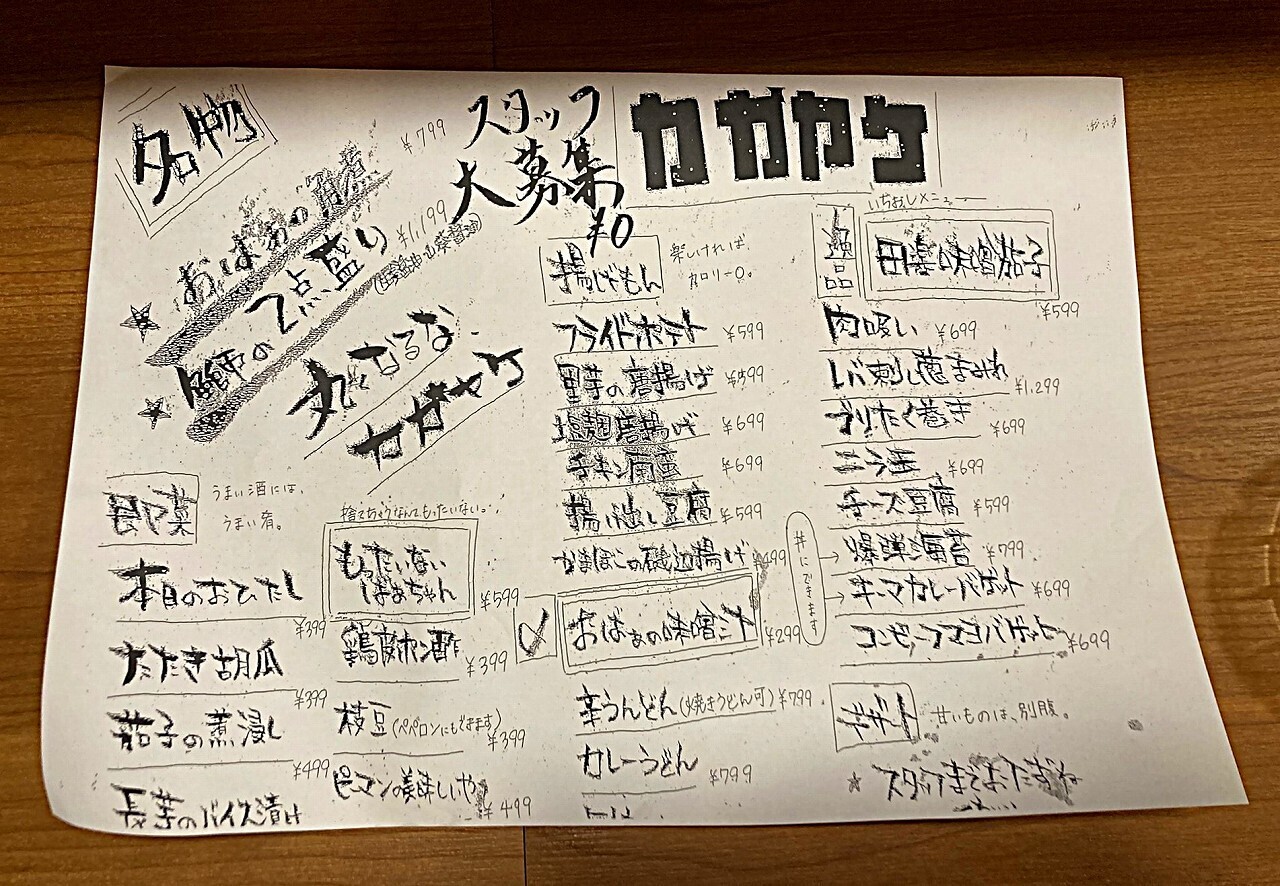 名物
おばぁの角煮 ¥799
鰤の2点盛り ¥1,199
丸になるな
カガヤケ
スタッフ
大募集
¥0
カガヤケ
即菜
うまい酒には、
うまい肴。
本日のおひたし
¥399
たたき胡瓜
¥399
茄子の煮浸し
¥499
長芋のバイス漬け
捨てちゃうなんてもったいない。
もったいない
ばぁちゃん
¥599
鶏皮ポン酢 ¥399
枝豆(ペペロンにもできます)
¥399
ピーマンの美味しいや
¥499
揚じゃもん
楽しければ、
カロリー0。
フライドポテト ¥599
里芋の唐揚げ
塩麹唐揚げ ¥699
チキン南蛮 ¥699
揚げ出し豆腐 ¥599
かまぼこの磯辺揚げ ¥499
〆
おばぁの味噌汁 ¥299
辛うどん(焼きうどん可) ¥799
カレーうどん ¥799
いちおしメニュー
逸品
田楽味噌茄子
¥599
肉吸い ¥699
レバ刺し葱まみれ ¥1,299
ブリたく巻き ¥699
ニラ玉 ¥699
チーズ豆腐 ¥599
丼にできます
爆弾海苔 ¥799
キーマカレーバゲット ¥699
コンビーフマヨバゲット ¥699
デザート
甘いものは、別腹。
スタッフまでおたずね